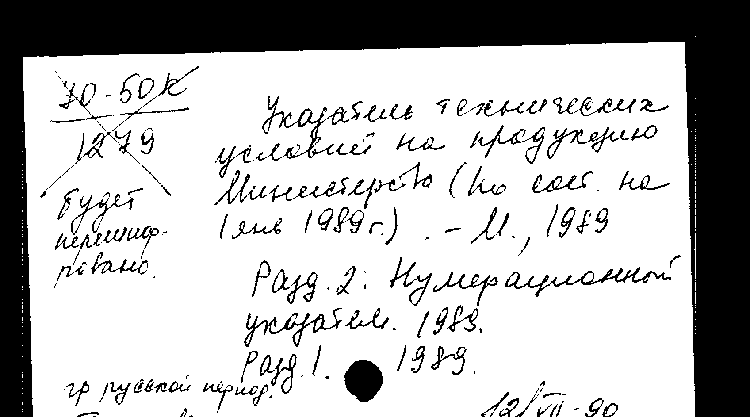 70-50К
1279
Будет
перешиф-
ровано.
Указатель технических
условий на продукцию
Министерства (по сост. на
1 янв 1989 г.). - М., 1989
Разд. 2. Нумерационной
указател. 1989.
Разд. 1. 1989.
гр русской период.
12/VII-90